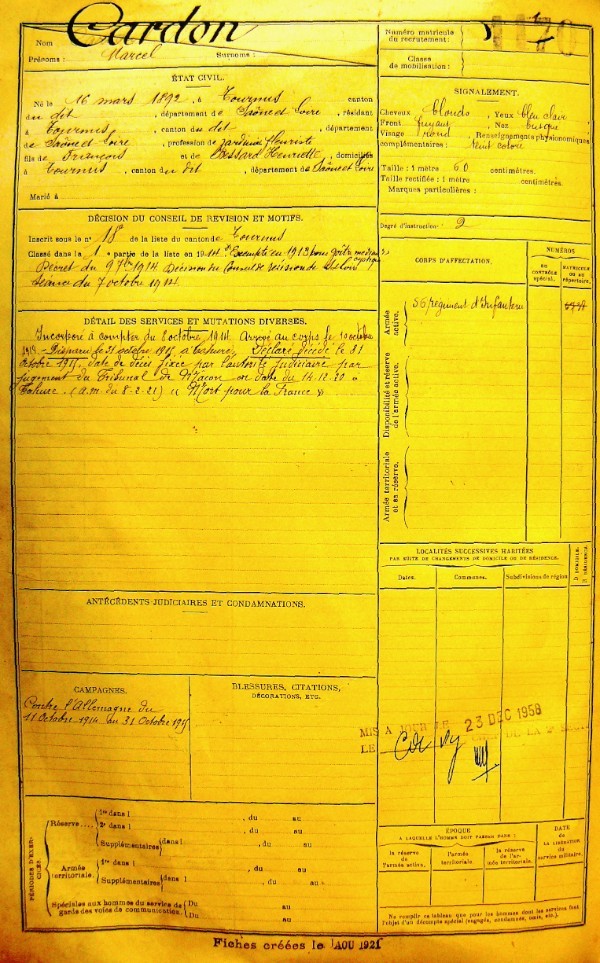 Nom Cardon
Prénoms : Marcel Surnoms :
ÉTAT CIVIL.
Né le 16 mars 1892, à Tournus canton
du dit, département de Saône et Loire, résidant
à Tournus, canton du dit, département
de Saône et Loire, profession de jardinier fleuriste
fils de François et de Bessard Henriette, domiciliés
à Tournus, canton du dit, département de Saône et Loire
Marié à
DÉCISION DU CONSEIL DE REVISION ET MOTIFS.
Inscrit sous le n° 18 de la liste du canton de Tournus
Classé dans la 1 e partie de la liste en 1914 Exempté en 1913 pour goître
Décret du 9 7bre 1914 Décision du Conseil de révision de
séance du 7 octobre 1914
DÉTAIL DES SERVICES ET MUTATIONS DIVERSES.
Incorporé à compter du 8 octobre 1914 Arrivé au corps le 10 octobre
Disparu le 31 octobre 1915 à Tahure, Déclaré décédé le 31
Octobre 1915, date de décès fixée par l'autorité judiciaire par
jugement du Tribunal de Mâcon en date du 14.12.20 à
Tahure. (a.m. du 8-2-21) « Mort pour la France »
ANTÉCÉDENTS JUDICIAIRES ET CONDAMNATIONS.
CAMPAGNES.
Contre l'Allemagne du
11 Octobre 1914 au 31 Octobre 1915
BLESSURES, CITATIONS,
DÉCORATIONS, ETC.
PÉRIODES D'EXERCICES.
Réserve.... 1re dans l , du au
2e dans l , du au
Supplémentaires dans l , du au
, du au
Armée territoriale. 1re dans l , du au
Supplémentaires dans l , du au
, du au
Spéciales aux hommes du service de Du au
garde des voies de communication. Du au
Numéro matricule
du recrutement:
Classe
de mobilisation:
SIGNALEMENT.
Cheveux blonds, Yeux bleu clair
Front fuyant, Nez busqué
Visage rond, Renseignements physionomiques
complémentaires : teint coloré
Taille : 1 mètre 60 centimètres.
Taille rectifiée : 1 mètre centimètres.
Marques particulières :
Degré d'instruction : 2
CORPS D'AFFECTATION.
NUMÉROS
DU CONTRÔLE spécial.
MATRICULE OU DU répertoire.
Armée active.
56 régiment d'Infanterie
Disponibilité et réserve de l'armée active.
Armée territoriale et sa réserve.
LOCALITÉS SUCCESSIVES HABITÉES
PAR SUITE DE CHANGEMENTS DE DOMICILE OU DE RÉSIDENCE.
Dates. Communes. Subdivisions de région
D. DOMICILE.
R. RÉSIDENCE.
MIS A JOUR LE 23 DEC 1958
LE DE LA
ÉPOQUE
A LAQUELLE L'HOMME DOIT PASSER DANS :
la réserve de l'armée active.
l'armée territoriale.
la réserve de l'armée territoriale.
DATE
DE LA LIBÉRATION
du service militaire.
Ne remplir ce tableau que pour les hommes dont les services font
l'objet d'un décompte spécial (engagés, condamnés, omis, etc.).
Fiches créées le AOU 1921